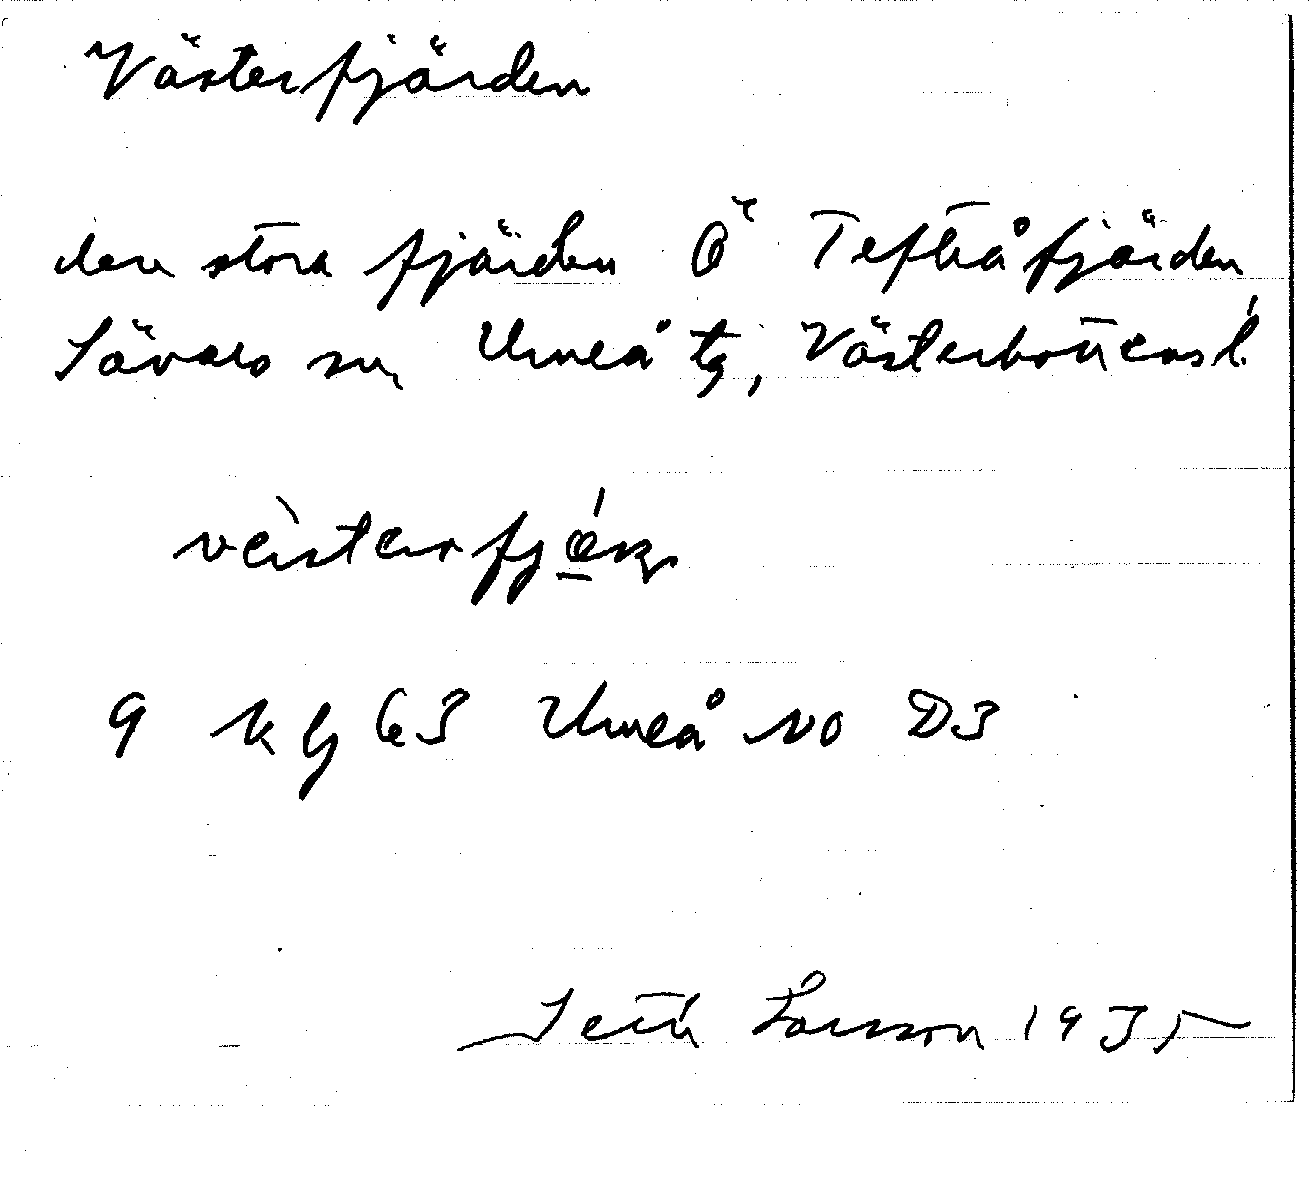 Västerfjärden
den stora fjärden Ö Tefteåfjärden
Sävars sn Umeå tg, Västerbottens l.
9 k g 63 Umeå NO D3
Seth Larsson 1935